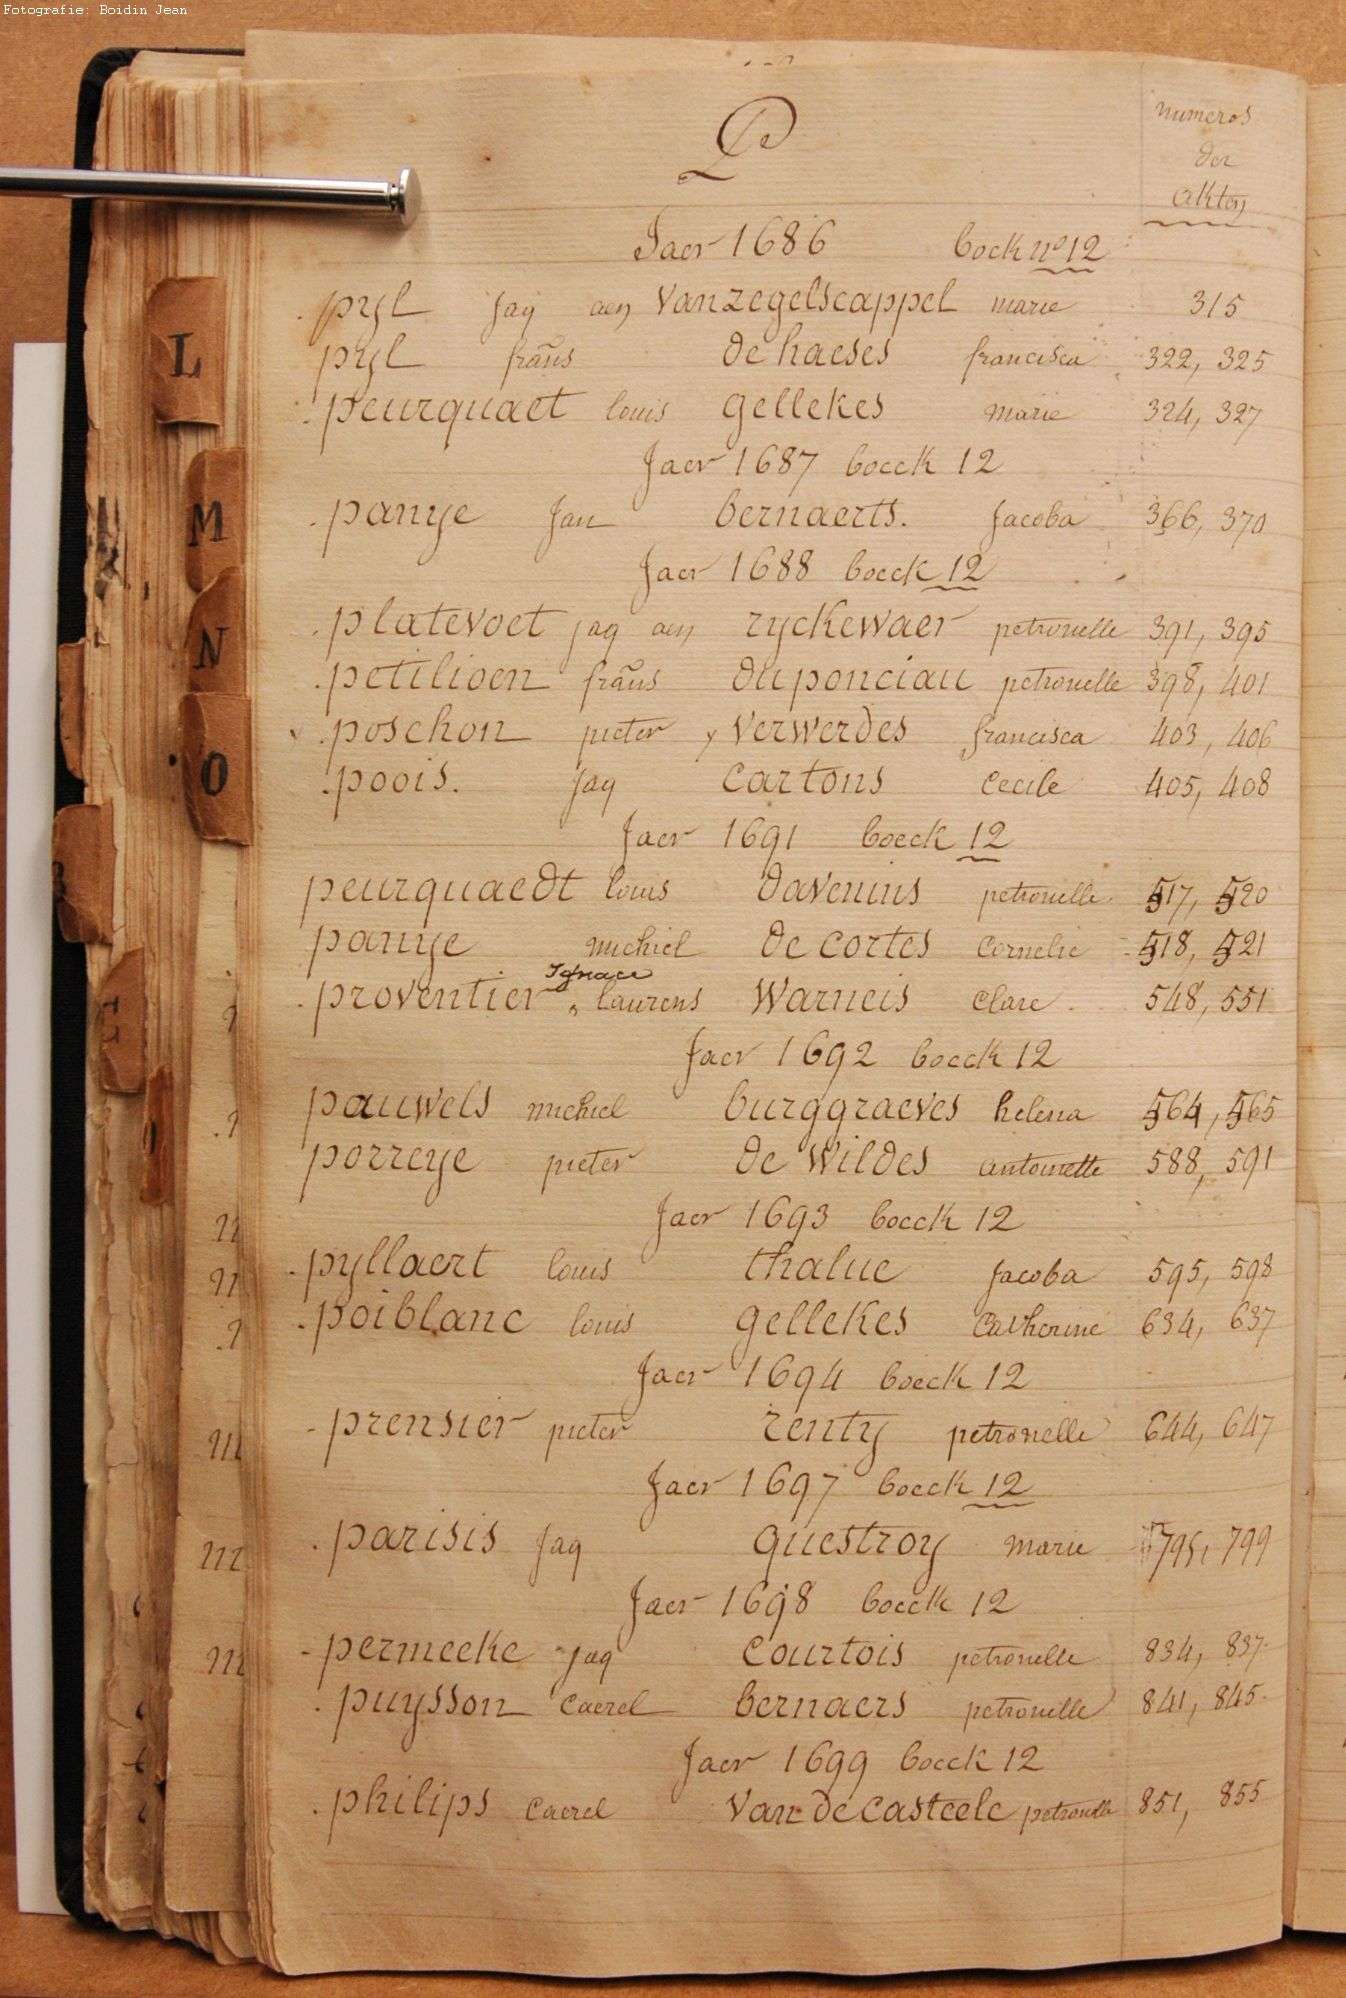 Fotografie: Boidin Jean
P
numeros
der
akten
Jaer 1686 boek nº 12
pyl jaq aen vanzegelscappel marie 315
pyl frans de haeses francisca 322, 325
peurquaet louis gellekes marie 324, 327
Jaer 1687 boeck 12
panye Jan bernaerts. Jacoba 366, 370
Jaer 1688 boeck 12
platevoet jaq aen ryckewaer petronelle 391, 395
petilioen frans duponciau petronelle 398, 401
poschon pieter verwerdes francisca 403, 406
poois. Jaq cartons Cecile 405, 408
Jaer 1691 boeck 12
peurquaedt louis davenins petronelle 517, 520
panye michiel de cortes Cornelie 518, 521
Ignace
proventier laurens warneis Clare 548, 551
Jaer 1692 boeck 12
pauwels michiel burggraeves helena 564, 565
porreye pieter de wildes antoinette 588, 591
Jaer 1693 boeck 12
pyllaert louis thaluc Jacoba 595, 598
poiblanc louis gellekes Catherine 634, 637
Jaer 1694 boeck 12
prensier pieter renty petronelle 644, 647
Jaer 1697 boeck 12
parisis Jaq questroy marie 795, 799
Jaer 1698 boeck 12
permeeke Jaq courtois petronelle 834, 837
puysson Caerel bernaers petronelle 841, 845
Jaer 1699 boeck 12
philips Caerel van de casteele petronelle 851, 855
L
M
N
O